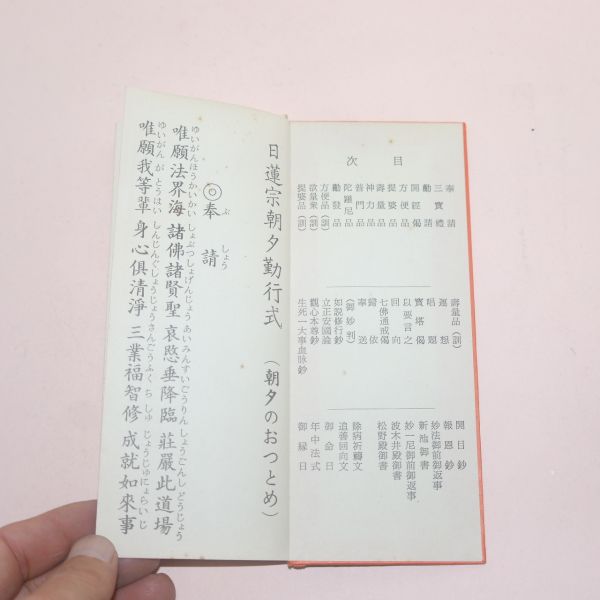 目次
奉請
三寶禮
勸請
開經偈
方便品
提婆品
壽量品
神力品
普門品
陀羅尼品
勸發品
方便品（訓）
欲量衆（訓）
提婆品（訓）
壽量品（訓）
運想
唱題
寶塔偈
以要言之
回向
七佛通戒偈
歸依
奉送
（御妙判）
如説修行鈔
立正安國論
觀心本尊鈔
生死一大事血脉鈔
開目鈔
報恩鈔
妙法御前御返事
新池御書
妙一尼御前御返事
波木井殿御書
松野殿御書
除病祈禱文
追善回向文
御命日
年中法式
御縁日
日蓮宗朝夕勤行式（朝夕のおつとめ）
ぶ しょう
◎奉請
ゆいがんほうかいかい しょぶつしょげんじょう あいみんすいごうりん しょうごんし どうじょう
唯願法界海 諸佛諸賢聖 哀愍垂降臨 莊嚴此道場
ゆいがん が とうはい しんじんぐしょうじょう さんごうふく ち しゅ じょうじゅにょらいじ
唯願我等輩 身心倶清淨 三業福智修 成就如來事